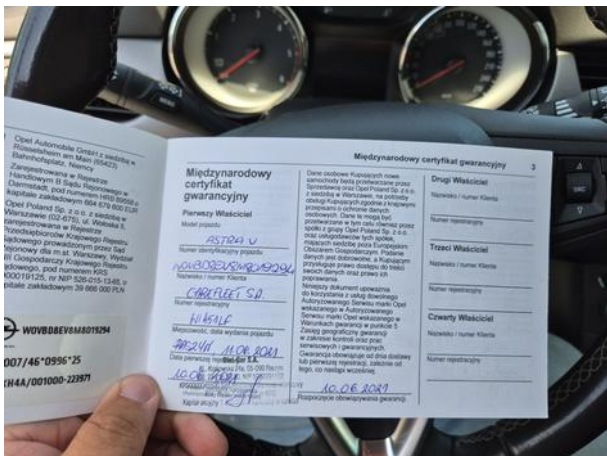 Opel Automobile GmbH z siedzibą w
Rüsselsheim am Main (65423)
Bahnhofsplatz, Niemcy
Zarejestrowana w Rejestrze
Handlowym B Sądu Rejonowego w
Darmstadt, pod numerem HRB
kapitale zakładowym 664 679 000 EUR
Opel Poland Sp. z o.o. z siedzibą w
Warszawie (02-675), ul. Wołoska 5,
zarejestrowana w Rejestrze
Przedsiębiorców Krajowego Rejestru
Sądowego prowadzonym przez Sąd
Rejonowy dla m.st. Warszawy, Wydział
XIII Gospodarczy Krajowego Rejestru
Sądowego, pod numerem KRS
nr NIP 526-015-1345, o
kapitale zakładowym 39 666 000 PLN
W0VBD8EV8M8019294
007/46*0996*25
KH4A/001000-223971
Międzynarodowy certyfikat gwarancyjny 3
Międzynarodowy
certyfikat
gwarancyjny
Pierwszy Właściciel
Model pojazdu
ASTRA V
Numer identyfikacyjny pojazdu
W0VBD8EV8M8019294
Nazwisko / numer Klienta
CAREFLEET S.A.
Numer rejestracyjny
Miejscowość, data wydania pojazdu
11.06.2021
Data pierwszej rejestracji
10.06.2021
Dane osobowe Kupujących nowe
samochody będą przetwarzane przez
Sprzedawcę oraz Opel Poland Sp. z o.o.
z siedzibą w Warszawie, na potrzeby
obsługi Kupujących zgodnie z krajowymi
przepisami o ochronie danych
osobowych. Dane te mogą być
przetwarzane w tym celu również przez
spółki z grupy Opel Poland Sp. z o.o.
oraz usługodawców tych spółek,
mających siedzibę poza Europejskim
Obszarem Gospodarczym. Podanie
danych jest dobrowolne, a Kupującym
przysługuje prawo dostępu do treści
swoich danych oraz prawo ich
poprawiania.
Niniejszy dokument upoważnia
do korzystania z usług dowolnego
Autoryzowanego Serwisu marki Opel
wskazanego w
Autoryzowanego
Serwisu marki Opel wskazanego w
Warunkach gwarancji w punkcie 5
Zasięg geograficzny gwarancji
w zakresie kontroli oraz prac
serwisowych i gwarancyjnych.
Gwarancja obowiązuje od dnia dostawy
lub pierwszej rejestracji, zależnie od
tego, co nastąpi wcześniej.
10.06.2021
Rozpoczęcie obowiązywania gwarancji
Drugi Właściciel
Nazwisko / numer Klienta
Numer rejestracyjny
Trzeci Właściciel
Nazwisko / numer Klienta
Numer rejestracyjny
Czwarty Właściciel
Nazwisko / numer Klienta
Numer rejestracyjny